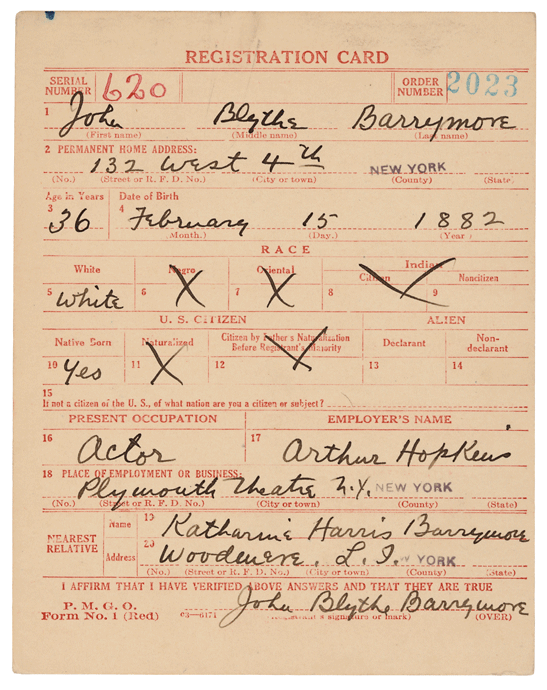 REGISTRATION CARD
SERIAL NUMBER 620 ORDER NUMBER 2023
1 John Blythe Barrymore
(First name) (Middle name) (Last name)
2 PERMANENT HOME ADDRESS:
132 West 4th NEW YORK
(No.) (Street or R. F. D. No.) (City or town) (County) (State)
Age in Years Date of Birth
3 36 4 February 15 1882
(Month.) (Day.) (Year)
RACE
White Negro Oriental Indian
Citizen Noncitizen
5 White 6 X 7 X 8 X 9
U. S. CITIZEN ALIEN
Native Born Naturalized Citizen by Father's Naturalization Before Registrant's Majority Declarant Non-declarant
10 Yes 11 X 12 X 13 14
15
If not a citizen of the U. S., of what nation are you a citizen or subject?
PRESENT OCCUPATION EMPLOYER'S NAME
16 Actor 17 Arthur Hopkins
18 PLACE OF EMPLOYMENT OR BUSINESS:
Plymouth Theatre N.Y. NEW YORK
(No.) (Street or R. F. D. No.) (City or town) (County) (State)
NEAREST RELATIVE
Name 19 Katharine Harris Barrymore
Address 20 Woodmere. L. I. NEW YORK
(No.) (Street or R. F. D. No.) (City or town) (County) (State)
I AFFIRM THAT I HAVE VERIFIED ABOVE ANSWERS AND THAT THEY ARE TRUE
P. M. G. O.
Form No. 1 (Red) 03—6171 John Blythe Barrymore
(Registrant's signature or mark) (OVER)